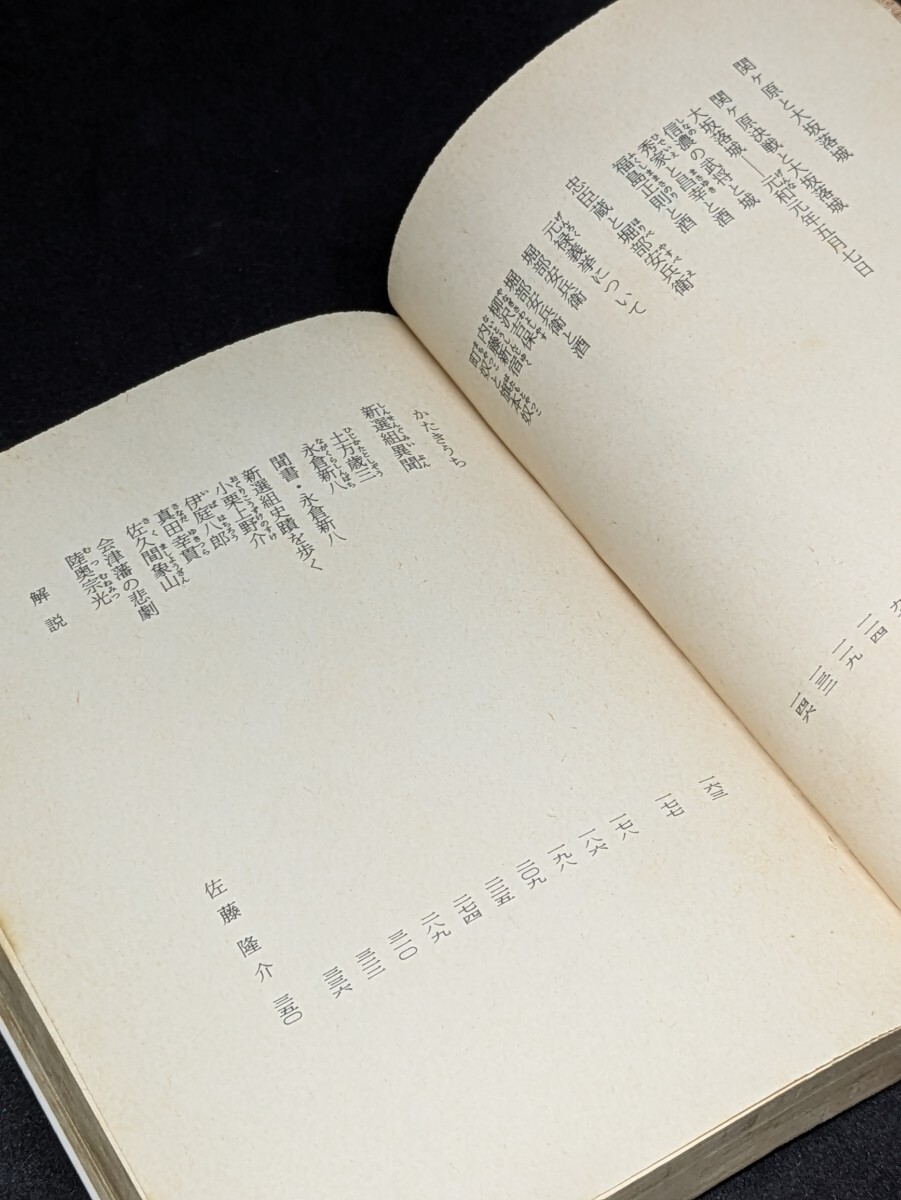 関ヶ原と大坂落城
関ヶ原決戦
大坂落城――元和元年五月七日
信濃の武将と城
秀家と昌幸と酒
福島正則と酒
忠臣蔵と堀部安兵衛
元禄義挙について
堀部安兵衛
堀部安兵衛と酒 一一四
柳沢吉保 一一九
内藤新宿 一三三
町奴と旗本奴 一四六
かたきうち 一六三
新選組異聞 一七七
土方歳三 一七八
永倉新八 一八六
聞書・永倉新八 一九八
新選組史蹟を歩く 二〇九
小栗上野介 二三五
伊庭八郎 二七四
真田幸貫 二八九
佐久間象山 三一〇
会津藩の悲劇 三二三
陸奥宗光 三三六
解説 佐藤隆介 三五〇